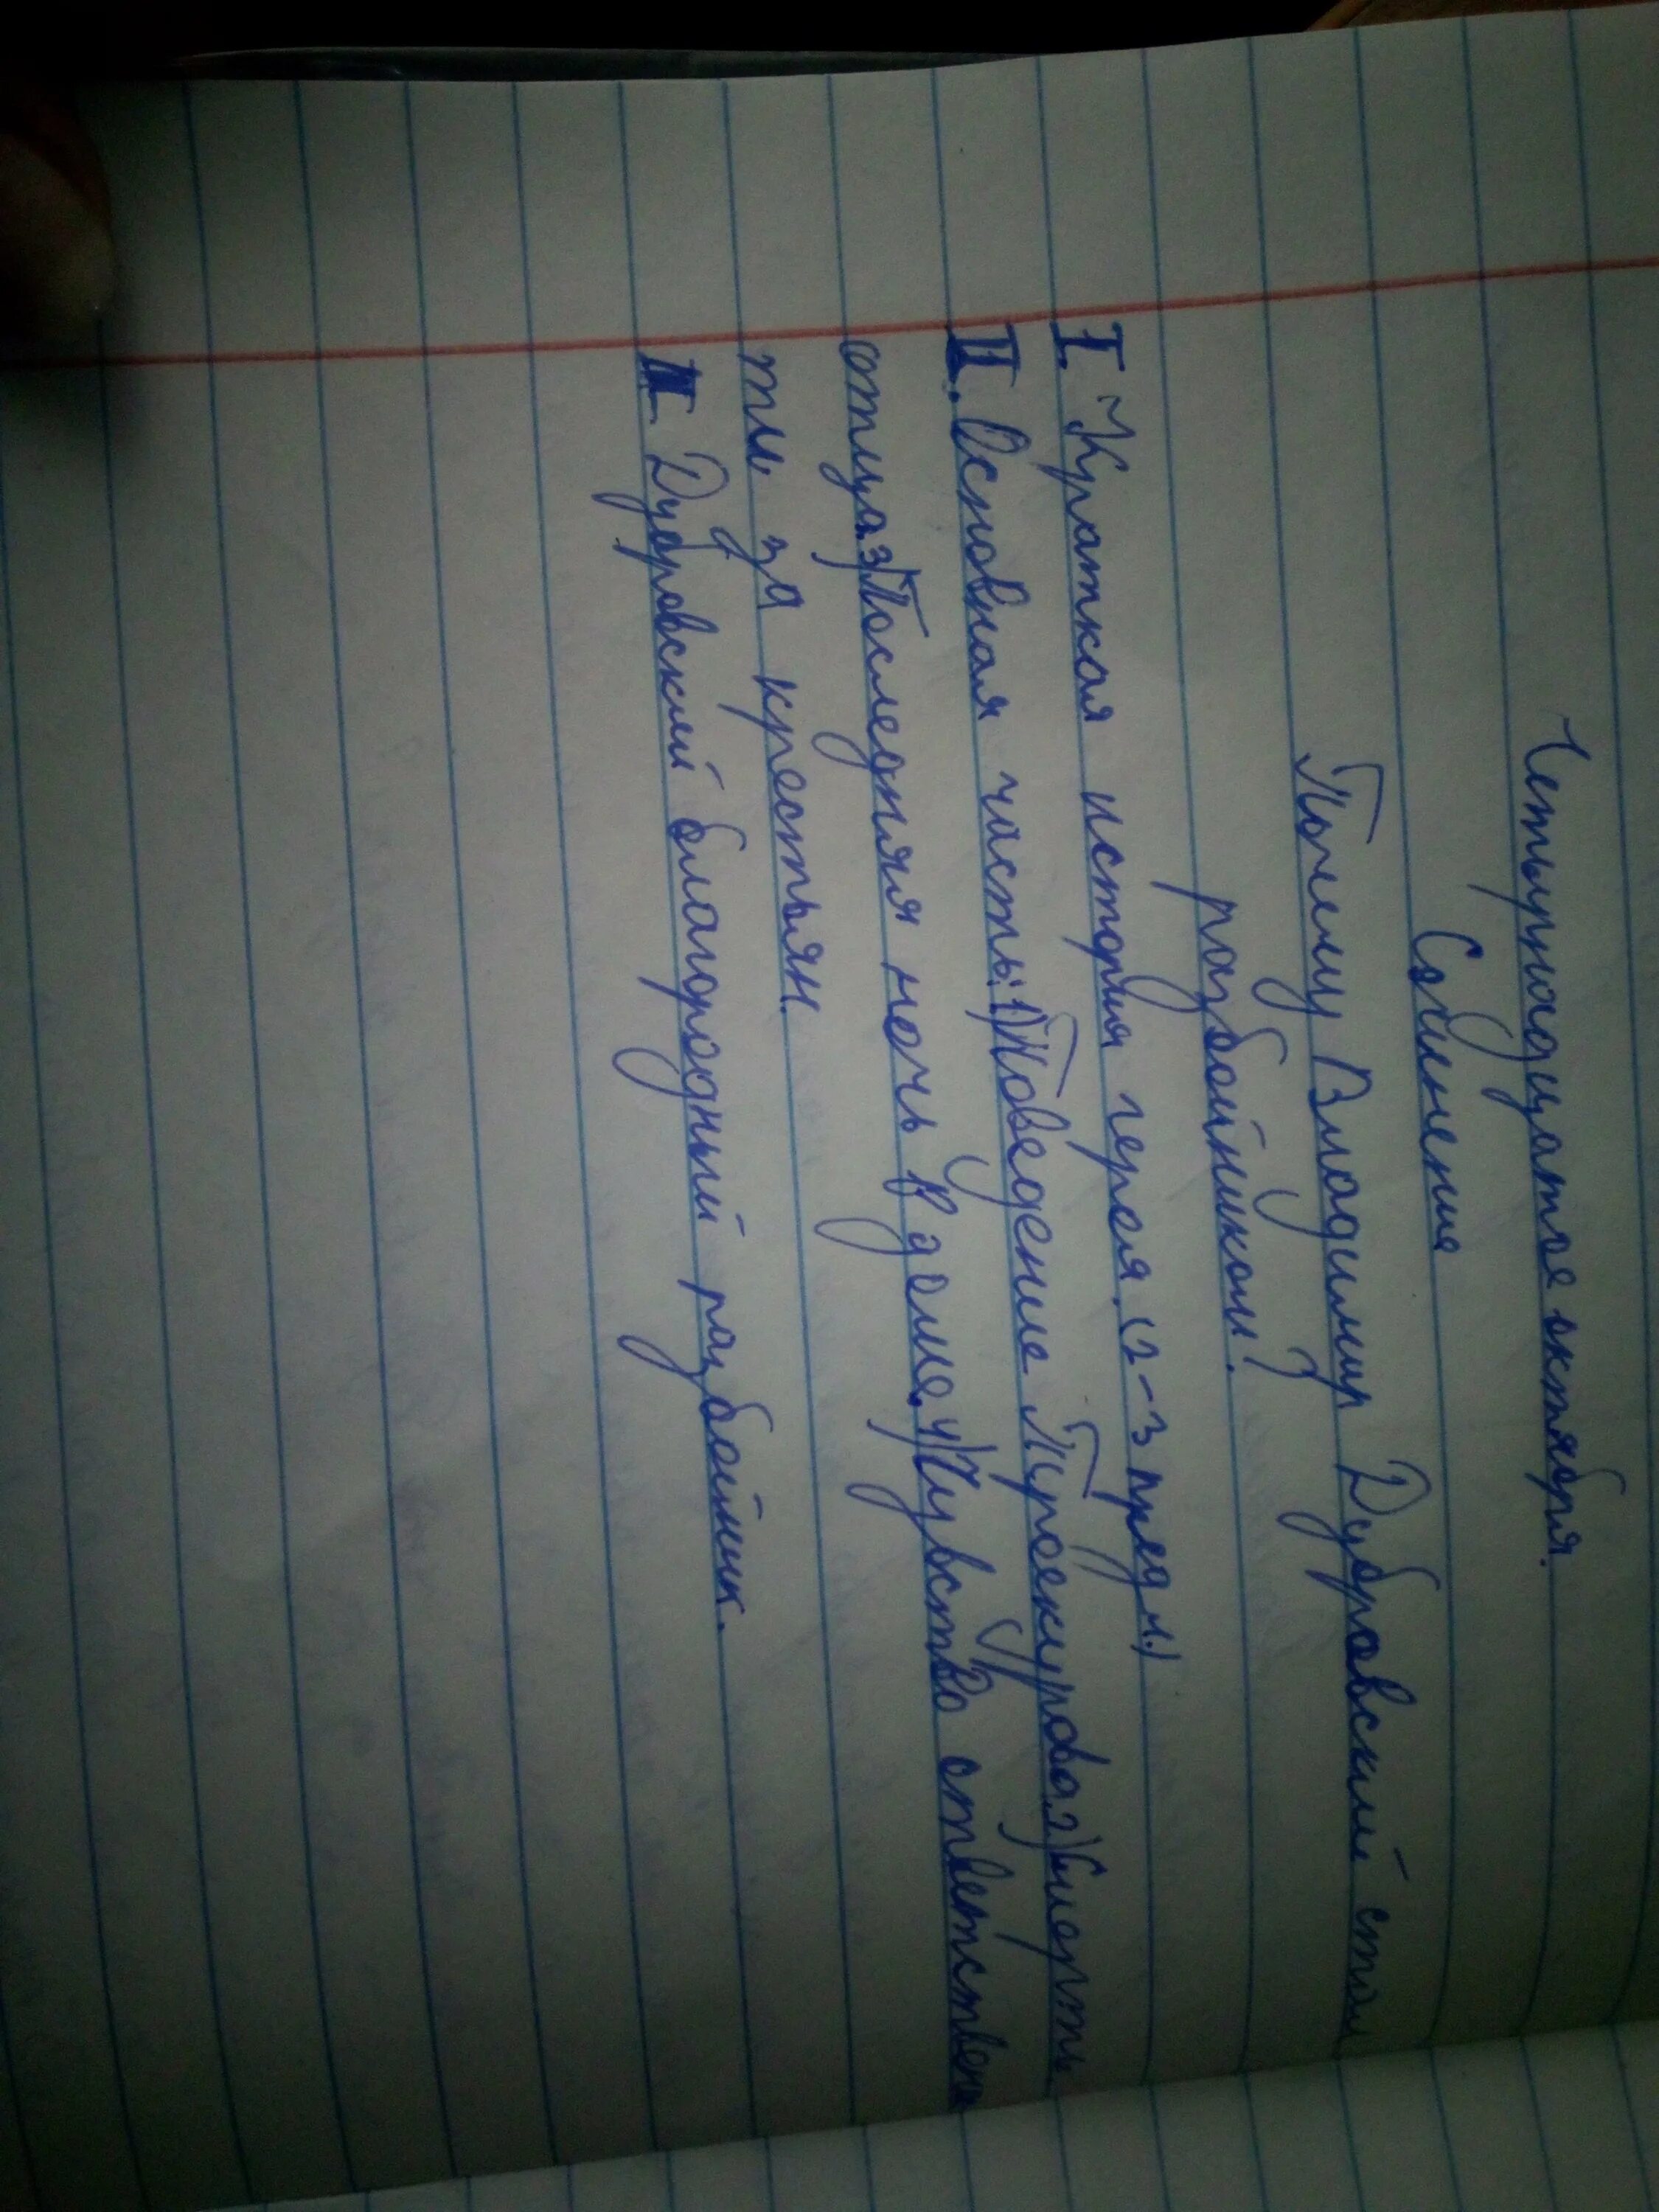 Четырнадцатое октября.
Сочинение
Почему Владимир Дубровский стал
разбойником?
I. Краткая история героя. (2-3 предл.)
II. Основная часть: 1) Поведение Троекурова. 2) Смерть
отца. 3) Последняя ночь в доме. 4) Чувство ответственнос
ти за крестьян.
III Дубровский благородный разбойник.